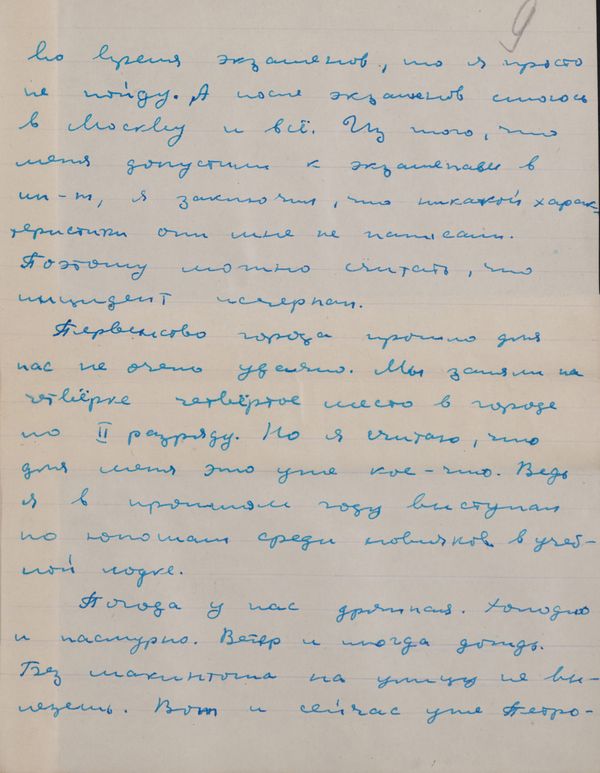 9
во время экзаменов, то я просто
не пойду. А после экзаменов смоюсь
в Москву и всё. Из того, что
меня допустили к экзаменам в
ин-т, я заключил, что никакой харак-
теристики они мне не написали.
Поэтому можно считать, что
инцидент исчерпан.
Первенство города прошло для
нас не очень удачно. Мы заняли на
четвёрке четвёртое место в городе
по II разряду. Но я считаю, что
для меня это уже кое-что. Ведь
я в прошлом году выступал
по юношам среди новичков в учеб-
ной лодке.
Погода у нас дрянная. Холодно
и пасмурно. Ветер и иногда дождь.
Без макинтоша на улицу не вы-
лезешь. Вот и сейчас уже Петро-